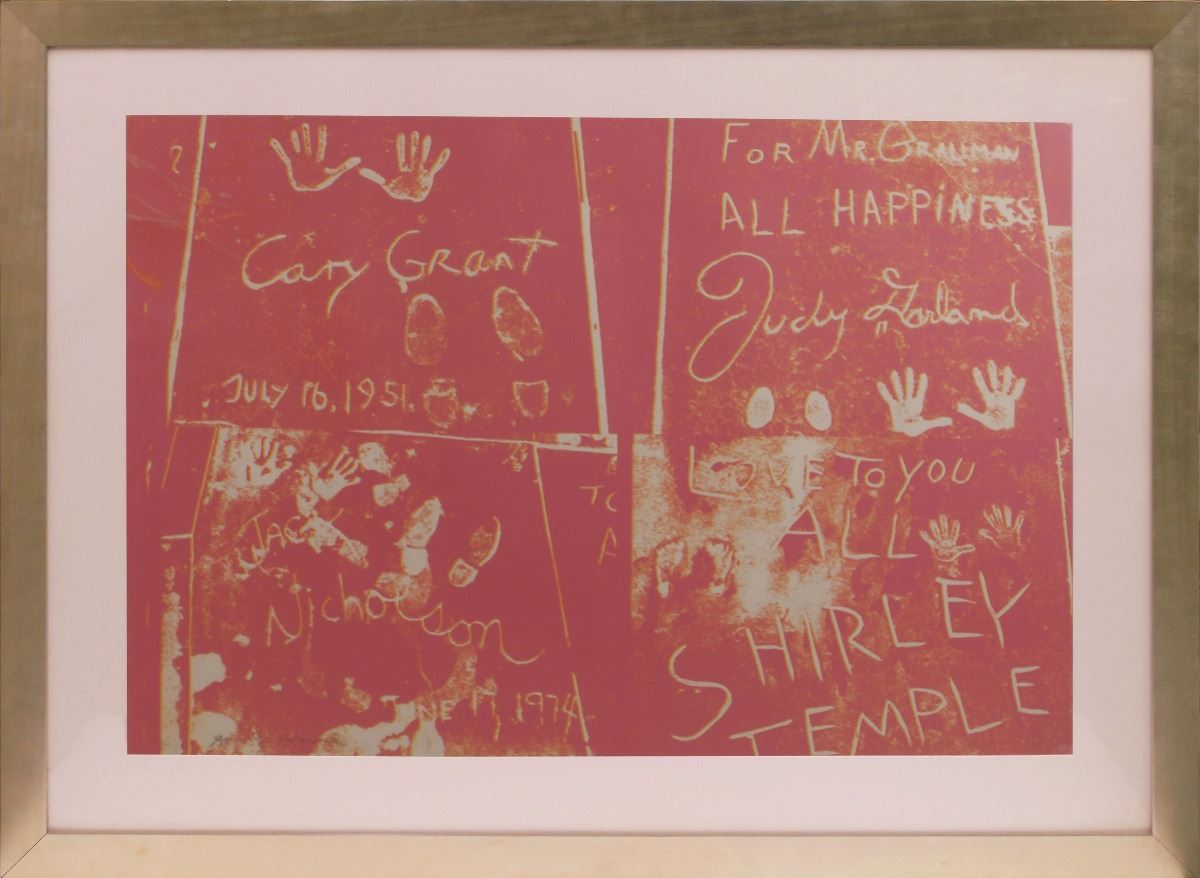 Cary Grant
JULY 16, 1951.
FOR MR. GRAUMAN
ALL HAPPINESS
Judy Garland
JACK
Nicholson
JUNE 17, 1974
TO
A
LOVE TO YOU
ALL
SHIRLEY
TEMPLE